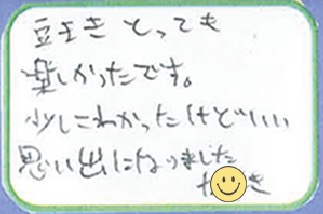 豆まき とっても
楽しかったです。
少しこわかったけどいい
思い出になりました